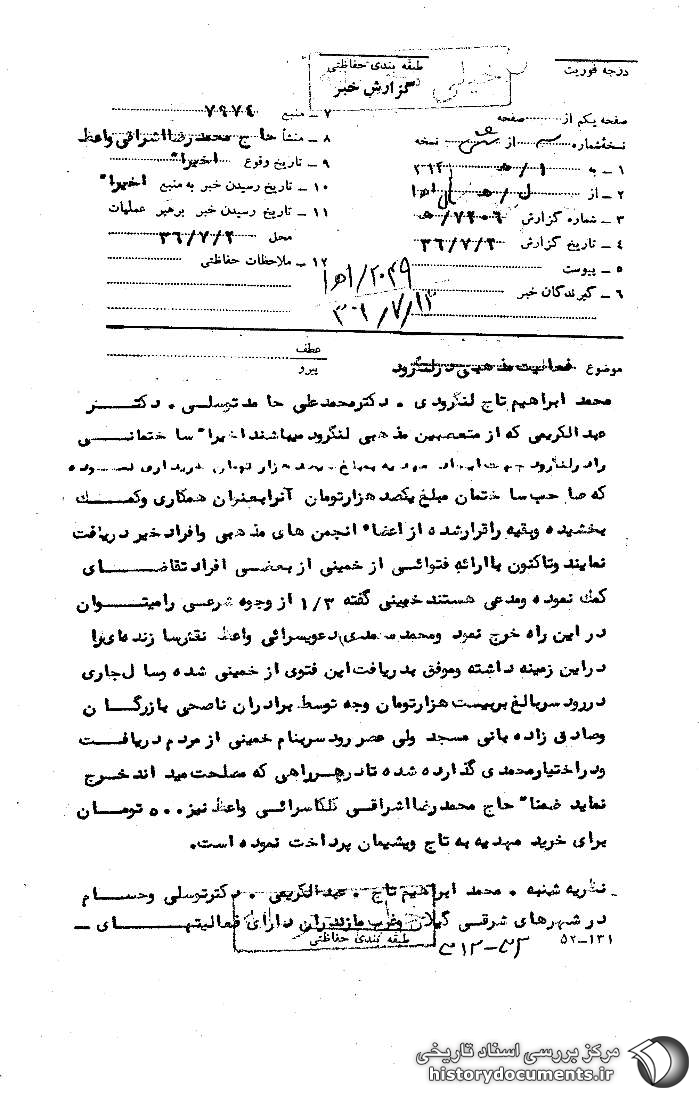 درجه فوریت
طبقه بندی حفاظتی
خیلی
گزارش خبر
صفحه یکم از صفحه
نسخهٔ شماره از شش نسخه
۱ ـ به ۳۱۲
۲ ـ از
۳ ـ شماره گزارش ۷۲۰۶/ه‍
۴ ـ تاریخ گزارش ۳۶/۷/۲
۵ ـ پیوست
۶ ـ گیرندگان خبر
۷ ـ منبع ۷۹۷۴
۸ ـ منشأ حاج محمدرضا اشراقی واعظ
۹ ـ تاریخ وقوع اخیراً
۱۰ ـ تاریخ رسیدن خبر به منبع اخیراً
۱۱ ـ تاریخ رسیدن خبر برهبر عملیات
محل ۳۶/۷/۲
۱۲ ـ ملاحظات حفاظتی
عطف
پیرو
موضوع فعالیت مذهبی در لنگرود
محمد ابراهیم تاج لنگرودی . دکتر محمدعلی حامد توسلی . دکتر
عبدالکریمی که از متعصبین مذهبی لنگرود میباشند اخیراً ساختمانی
را در لنگرود جهت ایجاد مهدیه بمبلغ هزار تومان خریداری نموده
که صاحب ساختمان مبلغ یکصد هزار تومان آنرا بعنوان همکاری و کمک
بخشیده و بقیه را قرار شده از اعضاء انجمن های مذهبی و افراد خیر دریافت
نمایند و تاکنون با ارائه فتوائی از خمینی از بعضی افراد تقاضای
کمک نموده و مدعی هستند خمینی گفته ۱/۳ از وجوه شرعی را میتوان
در این راه خرج نمود و محمد محمدی دعویسرائی واعظ نقش سازنده‌ای را
در این زمینه داشته و موفق بدریافت این فتوی از خمینی شده و سال جاری
در رودسر بالغ بر بیست هزار تومان وجه توسط برادران ناصحی بازرگان
و صادق زاده بانی مسجد ولی عصر رودسر بنام خمینی از مردم دریافت
و در اختیار محمدی گذارده شده تا در هر راهی که مصلحت میداند خرج
نماید ضمناً حاج محمدرضا اشراقی کلکاسرائی واعظ نیز ۵۰۰۰ تومان
برای خرید مهدیه به تاج و پشیمان پرداخت نموده است.
نظریه شنبه . محمد ابراهیم تاج . عبدالکریمی . دکتر توسلی و حسام
در شهرهای شرقی گیلان و غرب مازندران دارای فعالیتهای ـ
طبقه بندی حفاظتی
۵۲-۱۳۱
مرکز بررسی اسناد تاریخی
historydocuments.ir